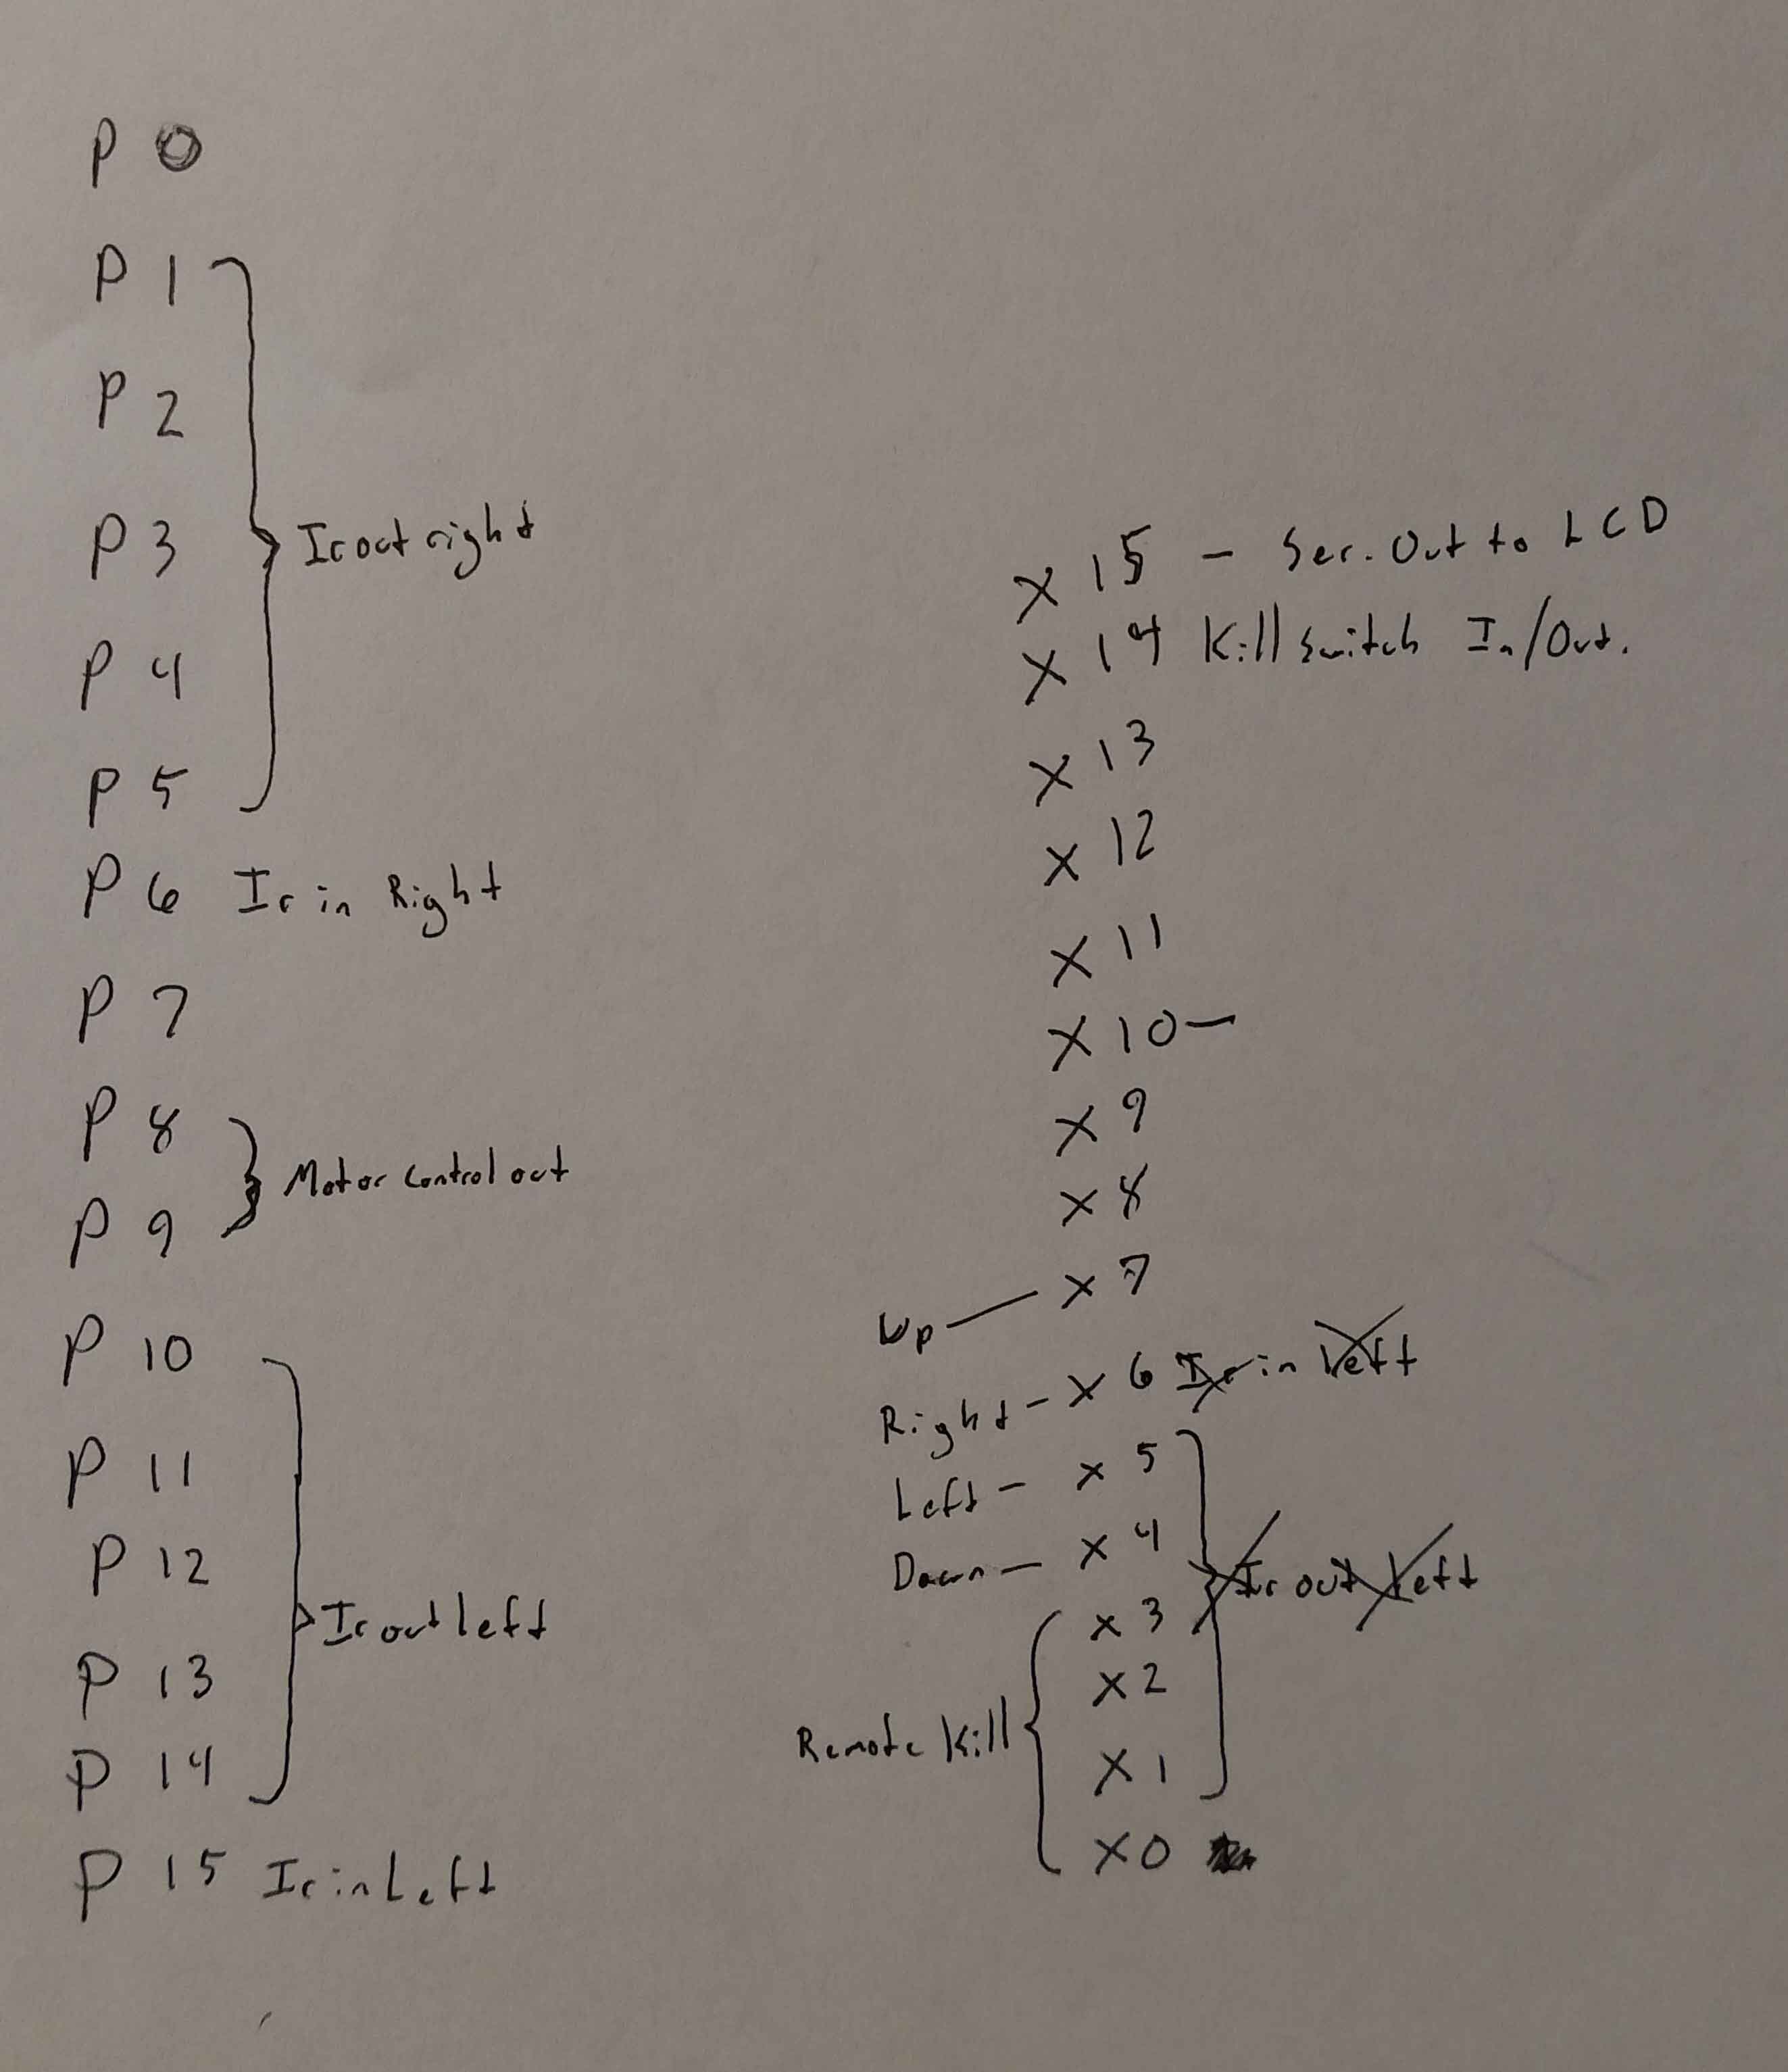 P 0
P 1
P 2
P 3
Ir out right
P 4
P 5
P 6 Ir in Right
P 7
P 8
Motor Control out
P 9
P 10
P 11
P 12
Ir out left
P 13
P 14
P 15 Ir in Left
X 15 - Ser. Out to LCD
X 14 Kill Switch In/Out.
X 13
X 12
X 11
X 10 -
X 9
X 8
Up - X 7
Right - X 6 Ir in Left
Left - X 5
Down - X 4
Ir out Left
X 3
X 2
Remote Kill
X 1
X 0